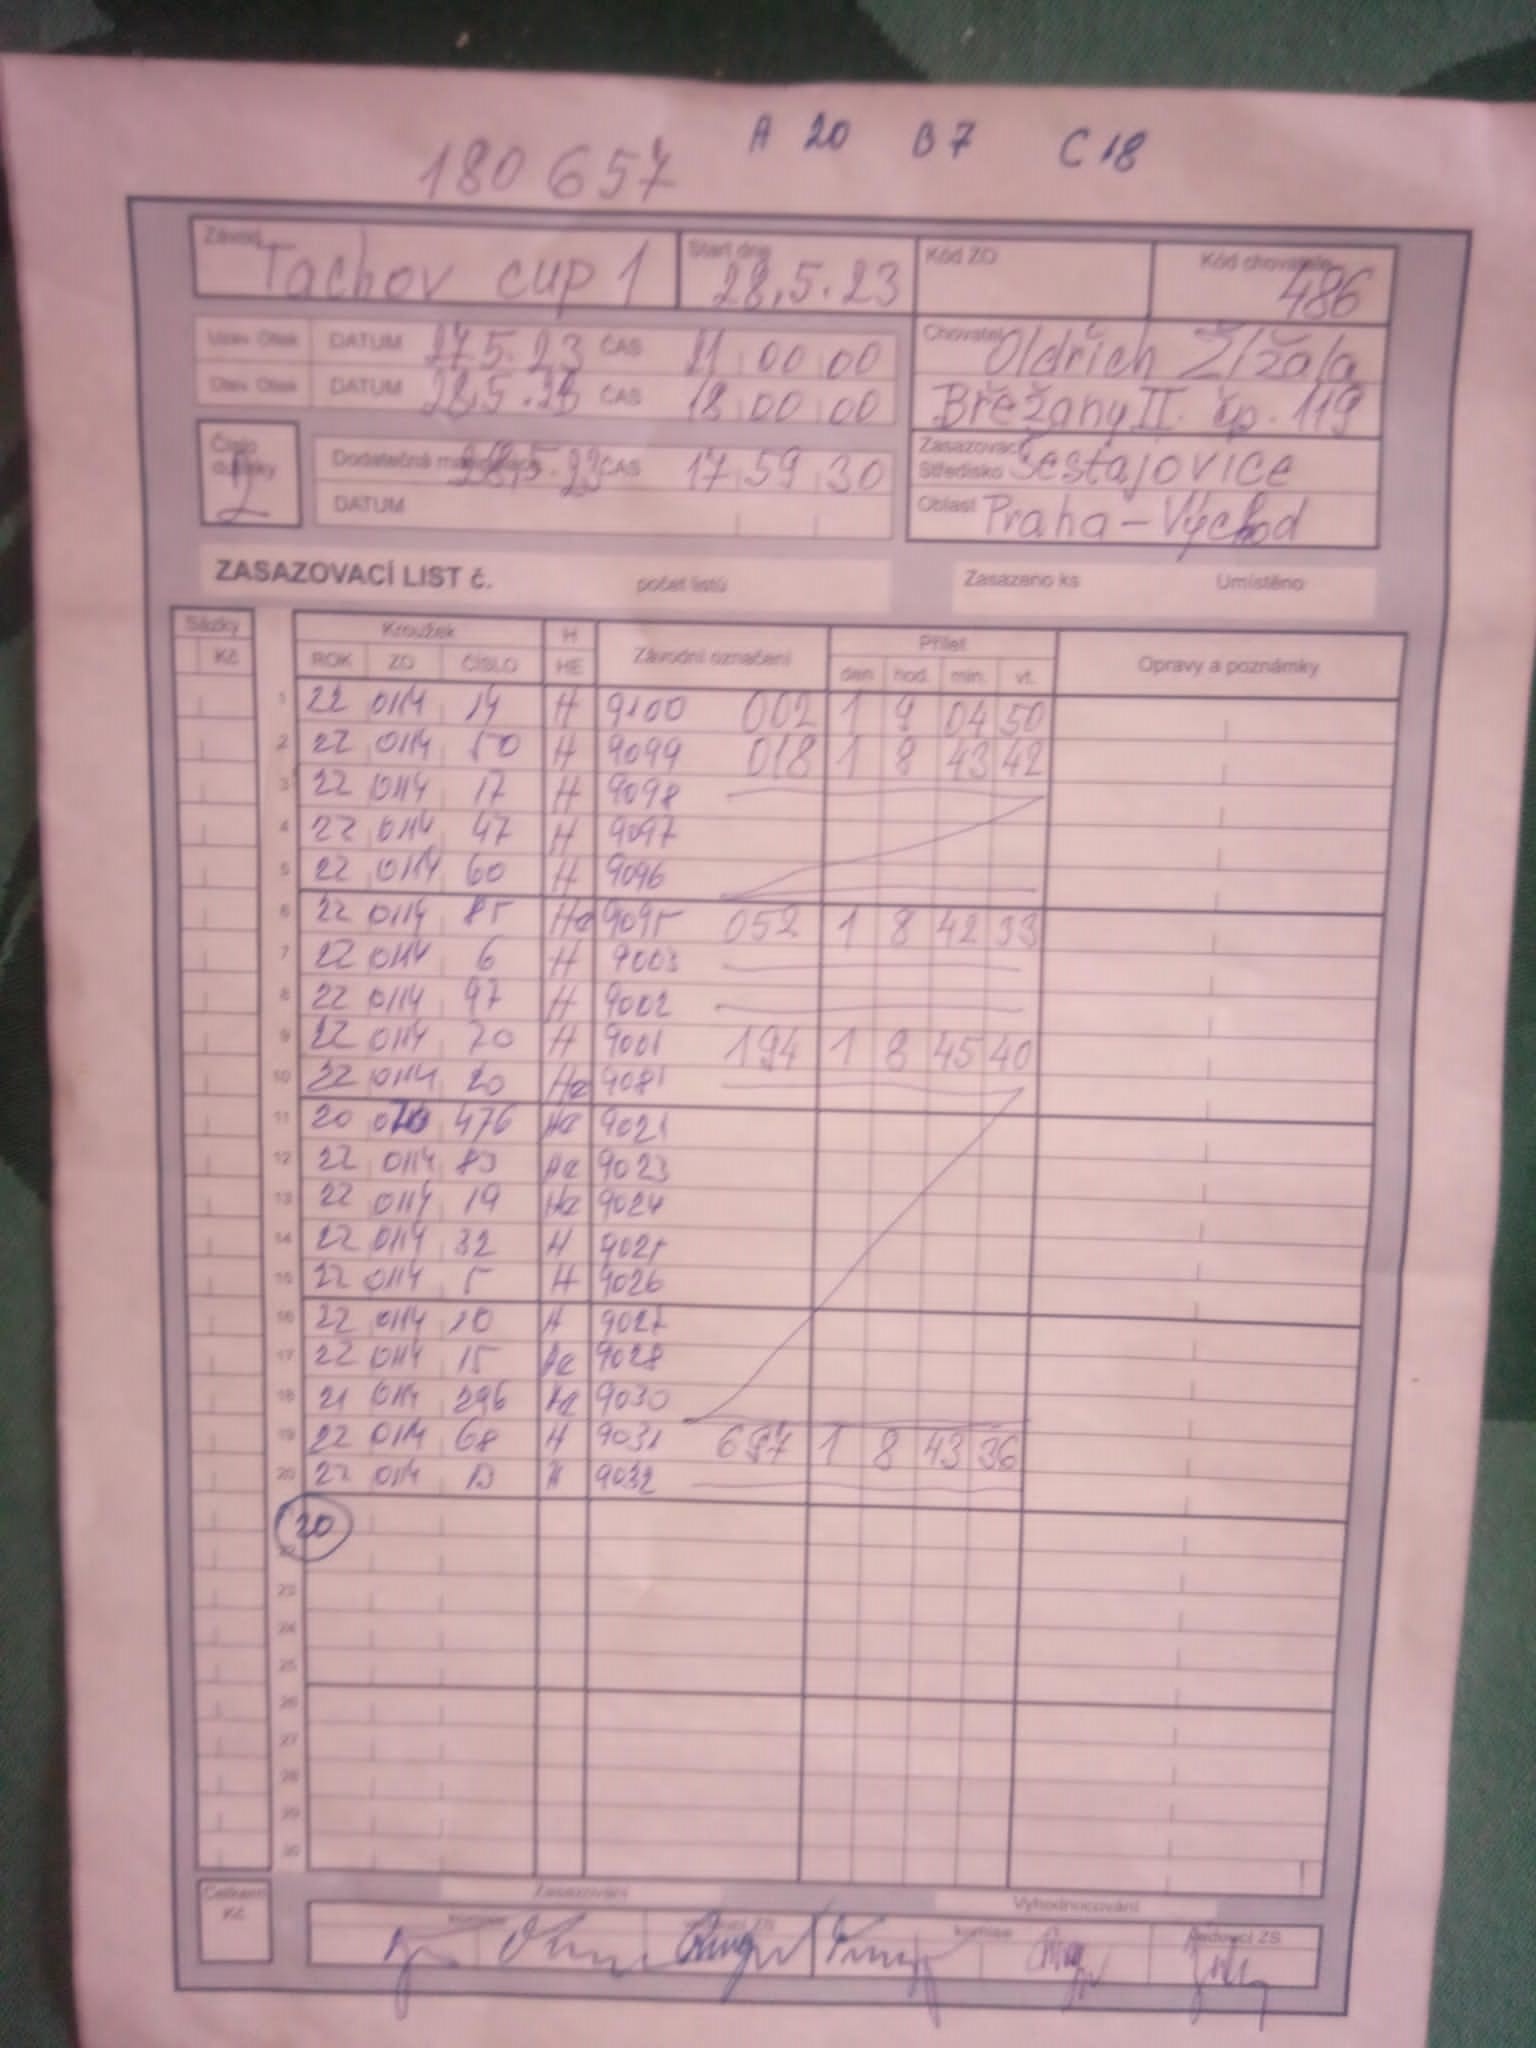 A 20 B 7 C 18
180 657
Závod Tachov cup 1 Start dne 28.5.23 Kód ZO Kód chovatele 486
Uzav. Otisk DATUM 27.5.23 ČAS 21 00 00
Otev. Otisk DATUM 28.5.23 ČAS 18 00 00
Chovatel Oldřich Žížala
Břežany II. čp. 119
Číslo 2
Dodatečná 28.5.23 ČAS 17 59 30
DATUM
Zasazovací Středisko Šestajovice
Oblast Praha - Východ
ZASAZOVACÍ LIST č. počet listů Zasazeno ks Umístěno
Sázky Kroužek H Závodní označení Přílet Opravy a poznámky
Kč ROK ZO ČÍSLO HE den hod. min. vt.
1 22 0114 14 H 9100 002 1 9 04 50
2 22 0114 50 H 9099 018 1 8 43 42
3 22 0114 17 H 9098
4 22 0114 47 H 9097
5 22 0114 60 H 9096
6 22 0114 85 He 9095 052 1 8 42 33
7 22 0114 6 H 9003
8 22 0114 97 H 9002
9 22 0114 70 H 9001 194 1 8 45 40
10 22 0114 20 He 9081
11 20 476 He 9021
12 22 0114 83 He 9023
13 22 0114 19 He 9024
14 22 0114 32 H 9025
15 22 0114 5 H 9026
16 22 0114 10 H 9027
17 22 0114 15 He 9028
18 21 0114 296 He 9030
19 22 0114 68 H 9031 687 1 8 43 36
20 22 0114 13 H 9032
20
23
24
25
26
27
28
29
30
Celkem Kč
Zasazování Vyhodnocování
komise vedoucí ZS komise vedoucí ZS